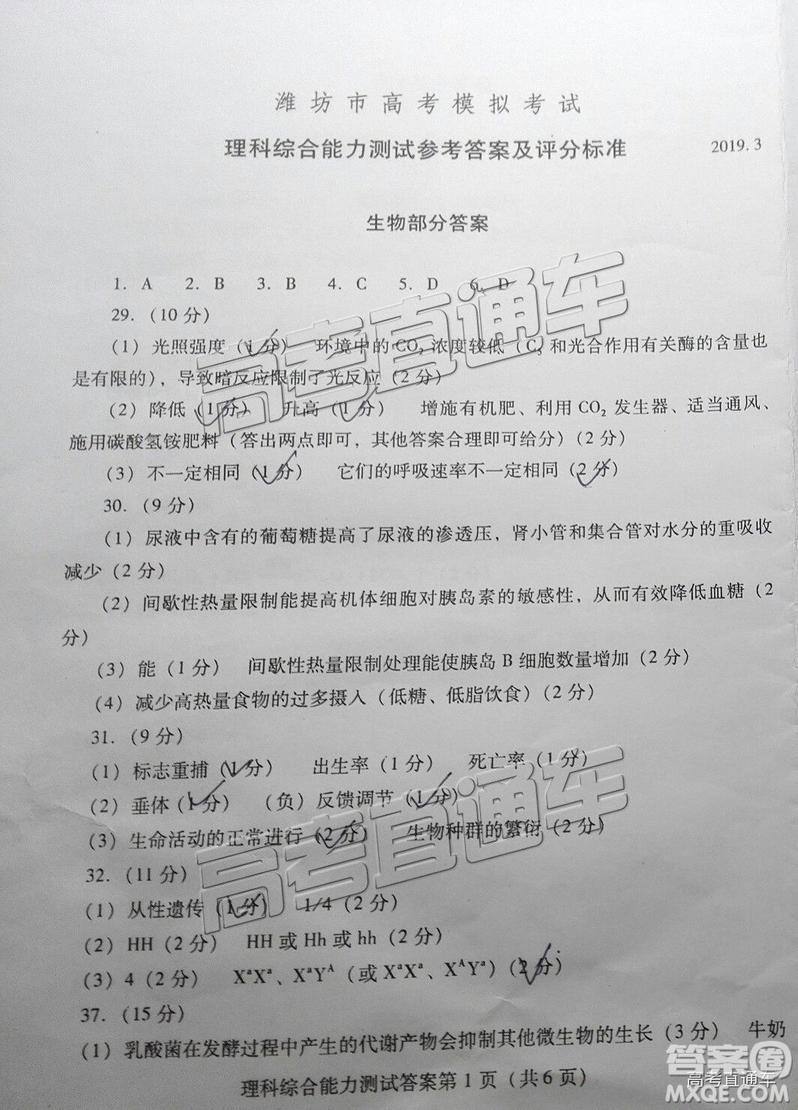 潍坊市高考模拟考试
理科综合能力测试参考答案及评分标准 2019.3
生物部分答案
1. A 2. B 3. B 4. C 5. D 6. D
29.（10 分）
（1）光照强度（1 分） 环境中的 CO₂ 浓度较低（C₅ 和光合作用有关酶的含量也
是有限的），导致暗反应限制了光反应（2 分）
（2）降低（1 分） 升高（1 分） 增施有机肥、利用 CO₂ 发生器、适当通风、
施用碳酸氢铵肥料（答出两点即可，其他答案合理即可给分）（2 分）
（3）不一定相同（1 分） 它们的呼吸速率不一定相同（2 分）
30.（9 分）
（1）尿液中含有的葡萄糖提高了尿液的渗透压，肾小管和集合管对水分的重吸收
减少（2 分）
（2）间歇性热量限制能提高机体细胞对胰岛素的敏感性，从而有效降低血糖（2
分）
（3）能（1 分） 间歇性热量限制处理能使胰岛 B 细胞数量增加（2 分）
（4）减少高热量食物的过多摄入（低糖、低脂饮食）（2 分）
31.（9 分）
（1）标志重捕（1 分） 出生率（1 分） 死亡率（1 分）
（2）垂体（1 分） （负）反馈调节（1 分）
（3）生命活动的正常进行（2 分） 生物种群的繁衍（2 分）
32.（11 分）
（1）从性遗传（1 分） 1/4（2 分）
（2）HH（2 分） HH 或 Hh 或 hh（2 分）
（3）4（2 分） XᵃXᵃ、XᵃYᴬ（或 XᵃXᵃ、XᴬYᵃ）（2 分）
37.（15 分）
（1）乳酸菌在发酵过程中产生的代谢产物会抑制其他微生物的生长（3 分） 牛奶
理科综合能力测试答案第 1 页（共 6 页）
高考直通车
高考直通车
答案圈
MXQE.COM
高考直通车